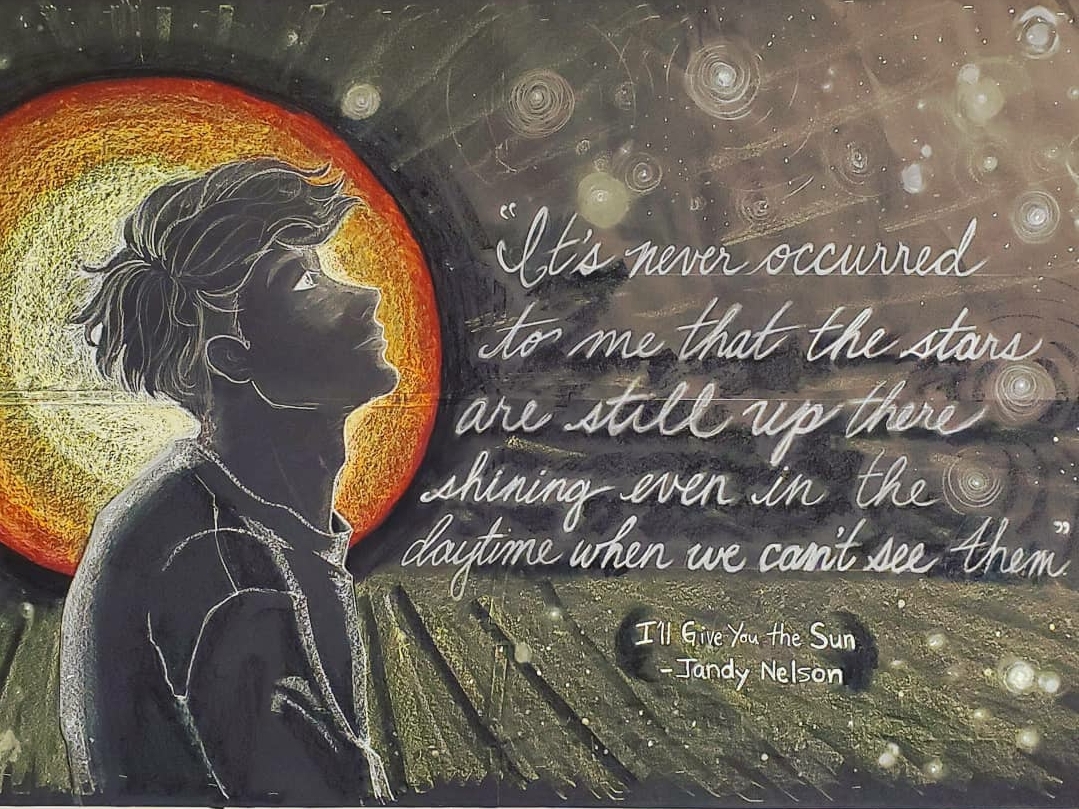 “It's never occurred
to me that the stars
are still up there
shining even in the
daytime when we can't see them”
I'll Give You the Sun
-Jandy Nelson